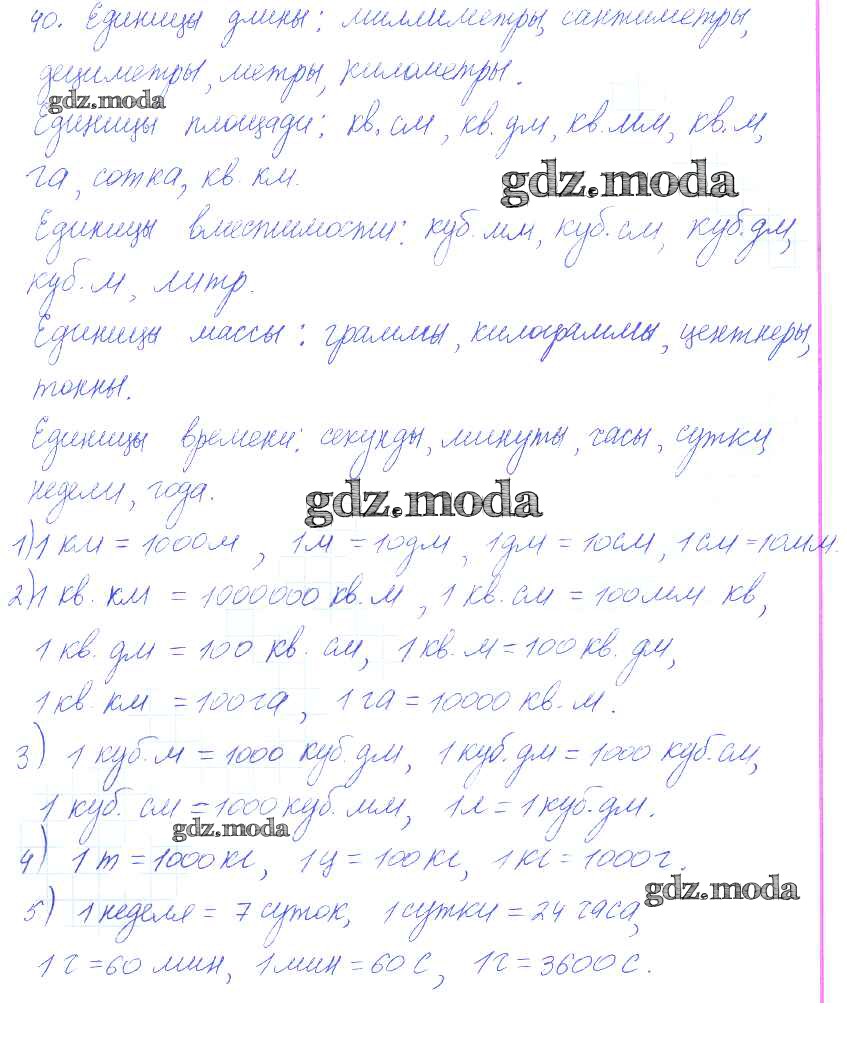 40. Единицы длины: миллиметры, сантиметры,
дециметры, метры, километры.
gdz.moda
Единицы площади: кв. см, кв. дм, кв. мм, кв. м,
га, сотка, кв. км.
gdz.moda
Единицы вместимости: куб. мм, куб. см, куб. дм,
куб. м, литр.
Единицы массы: граммы, килограммы, центнеры,
тонны.
Единицы времени: секунды, минуты, часы, сутки
недели, года.
gdz.moda
1) 1 км = 1000м, 1м = 10дм, 1дм = 10см, 1см = 10мм.
2) 1 кв. км = 1000000 кв. м, 1 кв. см = 100мм кв,
1 кв. дм = 100 кв. см, 1 кв. м = 100 кв. дм,
1 кв. км = 100га, 1 га = 10000 кв. м.
3) 1 куб. м = 1000 куб. дм, 1 куб. дм = 1000 куб. см,
1 куб. см = 1000 куб. мм, 1л = 1 куб. дм.
gdz.moda
4) 1 т = 1000кг, 1 ц = 100кг, 1 кг = 1000г.
gdz.moda
5) 1 неделя = 7 суток, 1 сутки = 24 часа,
1 ч = 60 мин, 1 мин = 60 с, 1ч = 3600 с.